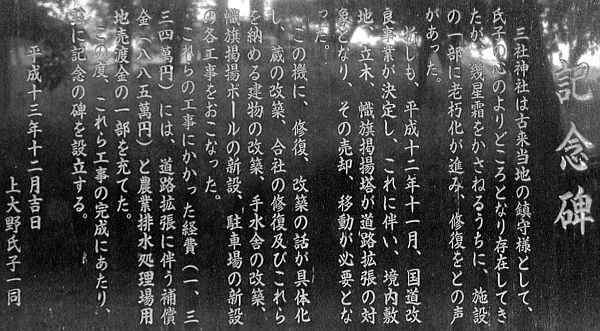 記念碑
三社神社は古来当地の鎮守様として、
氏子の心のよりどころとなり存在してき
たが、幾星霜をかさねるうちに、施設
の一部に老朽化が進み、修復をとの声
があった。
折しも、平成十二年十一月、国道改
良事業が決定し、これに伴い、境内敷
地、立木、幟旗掲揚塔が道路拡張の対
象となり、その売却、移動が必要とな
った。
この機に、修復、改築の話が具体化
し、蔵の改築、合社の修復及びこれら
を納める建物の改築、手水舎の改築、
幟旗掲揚ポールの新設、駐車場の新設
の各工事をおこなった。
これらの工事にかかった経費（一、三
三四萬円）には、道路拡張に伴う補償
金（八八五萬円）と農業排水処理場用
地売渡金の一部を充てた。
この度、これら工事の完成にあたり、
茲に記念の碑を設立する。
平成十三年十二月吉日
上大野氏子一同